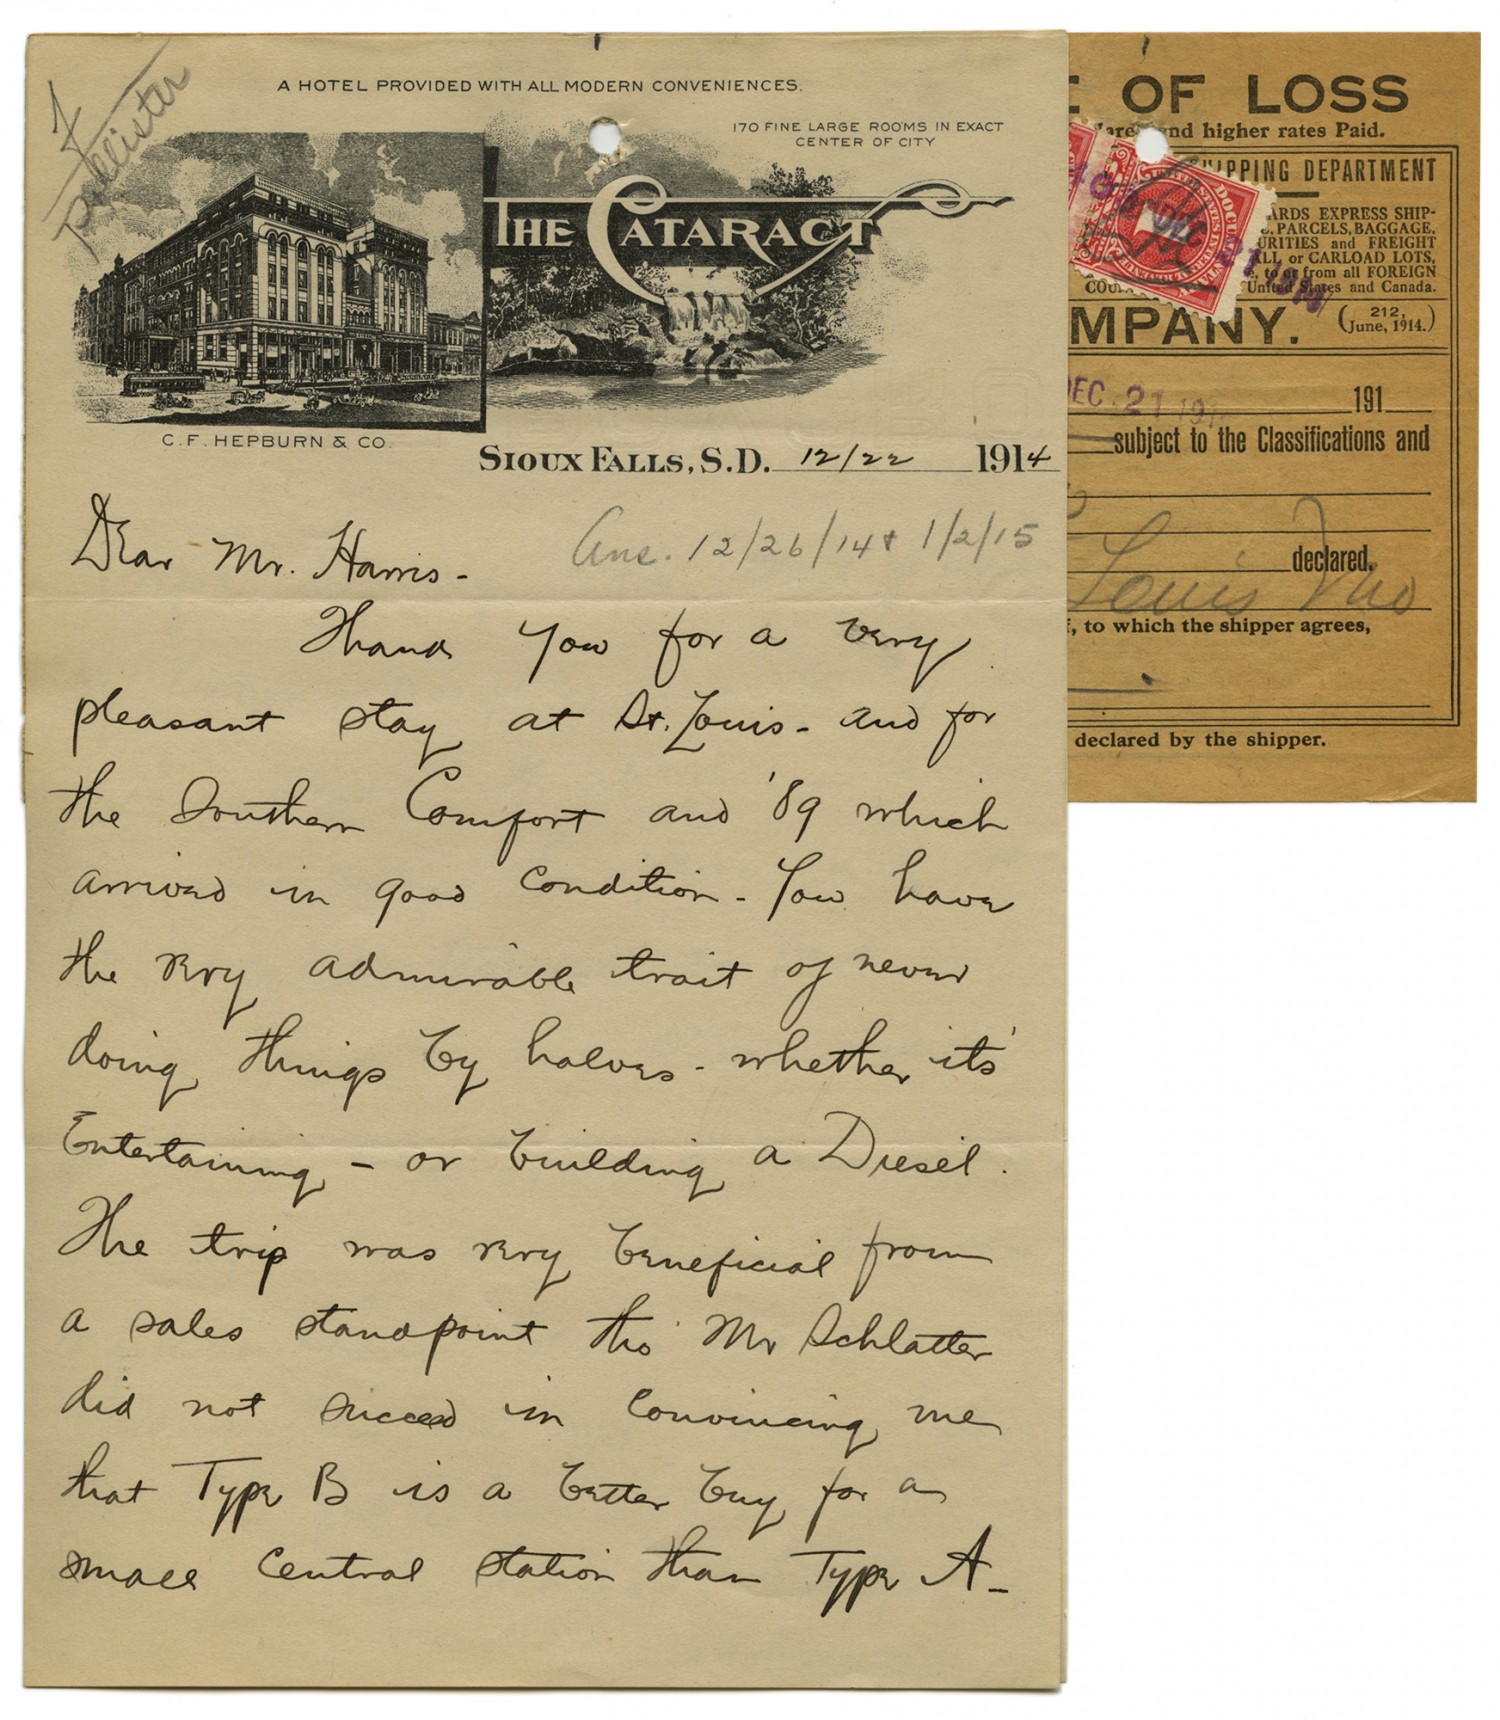 F
Pollister
A HOTEL PROVIDED WITH ALL MODERN CONVENIENCES.
170 FINE LARGE ROOMS IN EXACT
CENTER OF CITY
THE CATARACT
C. F. HEPBURN & CO.
SIOUX FALLS, S.D. 12/22 1914
Ans. 12/26/14 & 1/2/15
Dear Mr. Harris -
Thank you for a very
pleasant stay at St. Louis - and for
the Southern Comfort and '89 which
arrived in good condition - You have
the very admirable trait of never
doing things by halves - whether it's
Entertaining - or building a Diesel.
The trip was very beneficial from
a sales standpoint tho' Mr Schlatter
did not succeed in convincing me
that Type B is a better buy for a
small central station than Type A -
E OF LOSS
lared and higher rates Paid.
SHIPPING DEPARTMENT
ARDS EXPRESS SHIP-
PARCELS, BAGGAGE,
URITIES and FREIGHT
ALL or CARLOAD LOTS,
to or from all FOREIGN
United States and Canada.
MPANY.
(212, June, 1914.)
DEC 21 191
191
subject to the Classifications and
declared.
Louis Mo
f, to which the shipper agrees,
declared by the shipper.